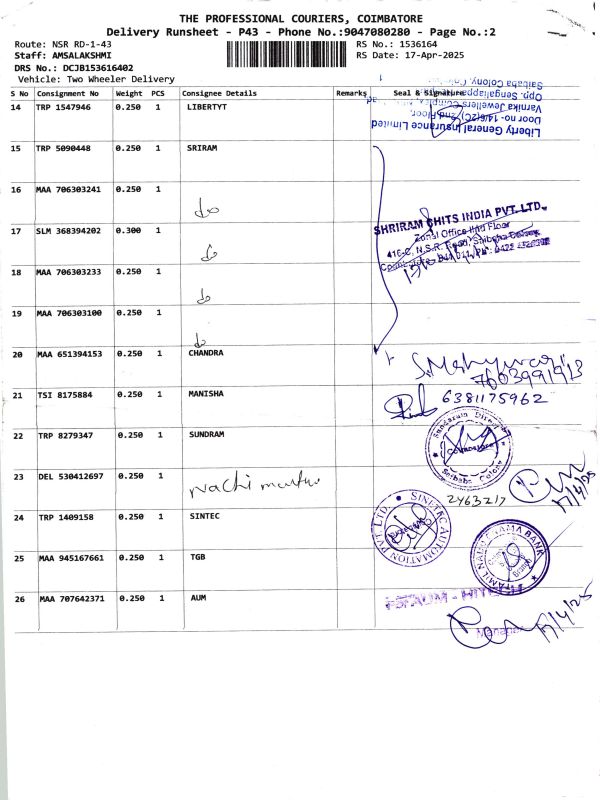 THE PROFESSIONAL COURIERS, COIMBATORE
Delivery Runsheet - P43 - Phone No.:9047080280 - Page No.:2
Route: NSR RD-1-43
Staff: AMSALAKSHMI
DRS No.: DCJB153616402
Vehicle: Two Wheeler Delivery
RS No.: 1536164
RS Date: 17-Apr-2025
S No Consignment No Weight PCS Consignee Details Remarks Seal & Signature
14 TRP 1547946 0.250 1 LIBERTYT
Liberty General Insurance Limited
Door no-14/6(2C) 2nd Floor,
Varnika Jewellers Complex,
Opp. Sengaliappa
Saibaba Colony,
15 TRP 5090448 0.250 1 SRIRAM
16 MAA 706303241 0.250 1 do
SHRIRAM CHITS INDIA PVT. LTD.
Zonal Office IInd Floor
416-C, N.S.R. Road, Saibaba Colony,
17 SLM 368394202 0.300 1 do
18 MAA 706303233 0.250 1 do
19 MAA 706303100 0.250 1 do
20 MAA 651394153 0.250 1 CHANDRA
7603991913
21 TSI 8175884 0.250 1 MANISHA
6381175962
22 TRP 8279347 0.250 1 SUNDRAM
Sundaram Direct
Coimbatore
Saibaba Colony
23 DEL 530412697 0.250 1
2463217
17/4/25
24 TRP 1409158 0.250 1 SINTEC
SINETKC AUTOMATION PVT. LTD.
25 MAA 945167661 0.250 1 TGB
TAMIL NADU GRAMA BANK
26 MAA 707642371 0.250 1 AUM
17/4/25